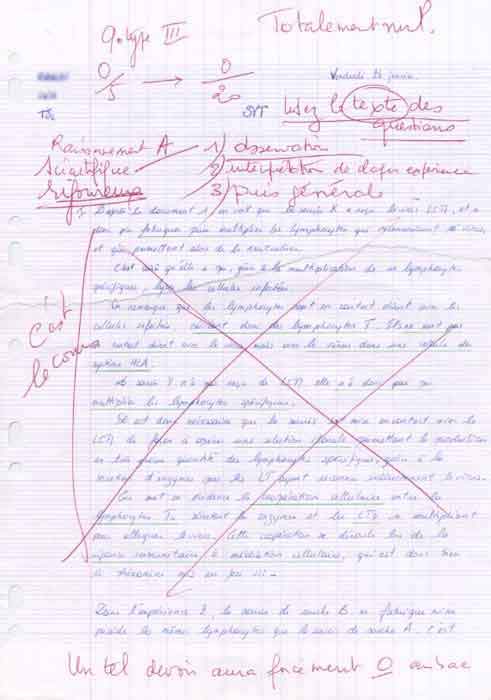 g. type III
Totalement nul.
0/5 → 0/20
Vendredi juin
TS SVT
Lisez le texte des questions
Raisonnement A
scientifique
rigoureux
1) observation
2) interprétation de chaque expérience
3) puis générale
1) D'après le document 1, on voit que la souris X a reçu le virus LCM, et a
donc pu fabriquer puis multiplier les lymphocytes qui reconnaissent ce virus,
et qui permettent alors de le neutraliser.
C'est ainsi qu'elle a pu, grâce à la multiplication de ces lymphocytes
spécifiques, lyser les cellules infectées.
On remarque que les lymphocytes sont en contact direct avec les
cellules infectées, ce sont donc des lymphocytes T. Ils ne sont pas
en contact direct avec le virus mais avec le virus dans une cellule du
système HLA.
La souris Y n'a pas reçu de LCM, elle n'a donc pas pu
multiplier les lymphocytes spécifiques.
Il est donc nécessaire que la souris soit mise en contact avec le
LCM de façon à opérer une sélection clonale permettant la production
en très grande quantité des lymphocytes spécifiques, grâce à la
sécrétion d'enzymes par les LT ayant reconnu indirectement le virus.
On met en évidence la coopération cellulaire entre les
lymphocytes T4 sécrétant les enzymes et les LT8 se multipliant
pour attaquer le virus. Cette coopération se déroule lors de la
réponse immunitaire à médiation cellulaire, qui est donc bien
le phénomène mis en jeu ici.
C'est
le cours
Dans l'expérience 2, la souris de souche B
possède les mêmes lymphocytes que la souris de souche A, c'est
Un tel devoir aura forcément 0 au bac